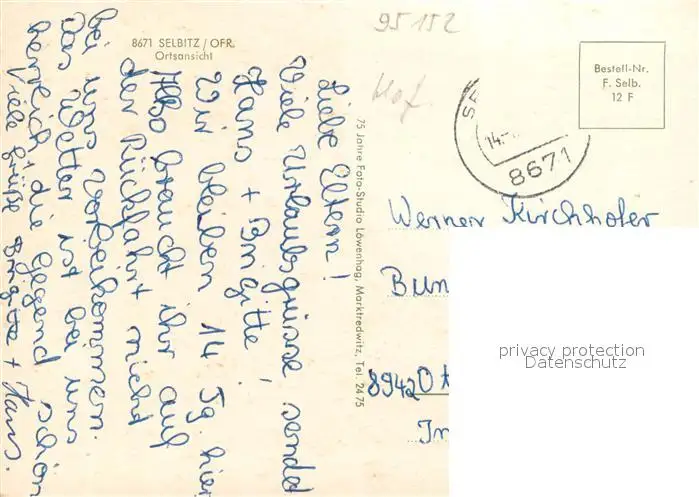 95152
Hof.
8671 SELBITZ / OFR.
Ortsansicht
Bestell-Nr.
F. Selb.
12 F
14.-
8671
75 Jahre Foto-Studio Löwenhag, Marktredwitz, Tel. 2475
Liebe Eltern!
Viele Urlaubsgrüsse sendet
Hans + Brigitte!
Wir bleiben 14 Tg. hier
Also braucht ihr auf
der Rückfahrt nicht
bei uns vorbeikommen.
Das Wetter ist bei uns
herrlich + die Gegend schön
Viele Grüße Brigitte + Hans.
Werner Kirchhofer
Bun
8942 Ot
In
privacy protection
Datenschutz